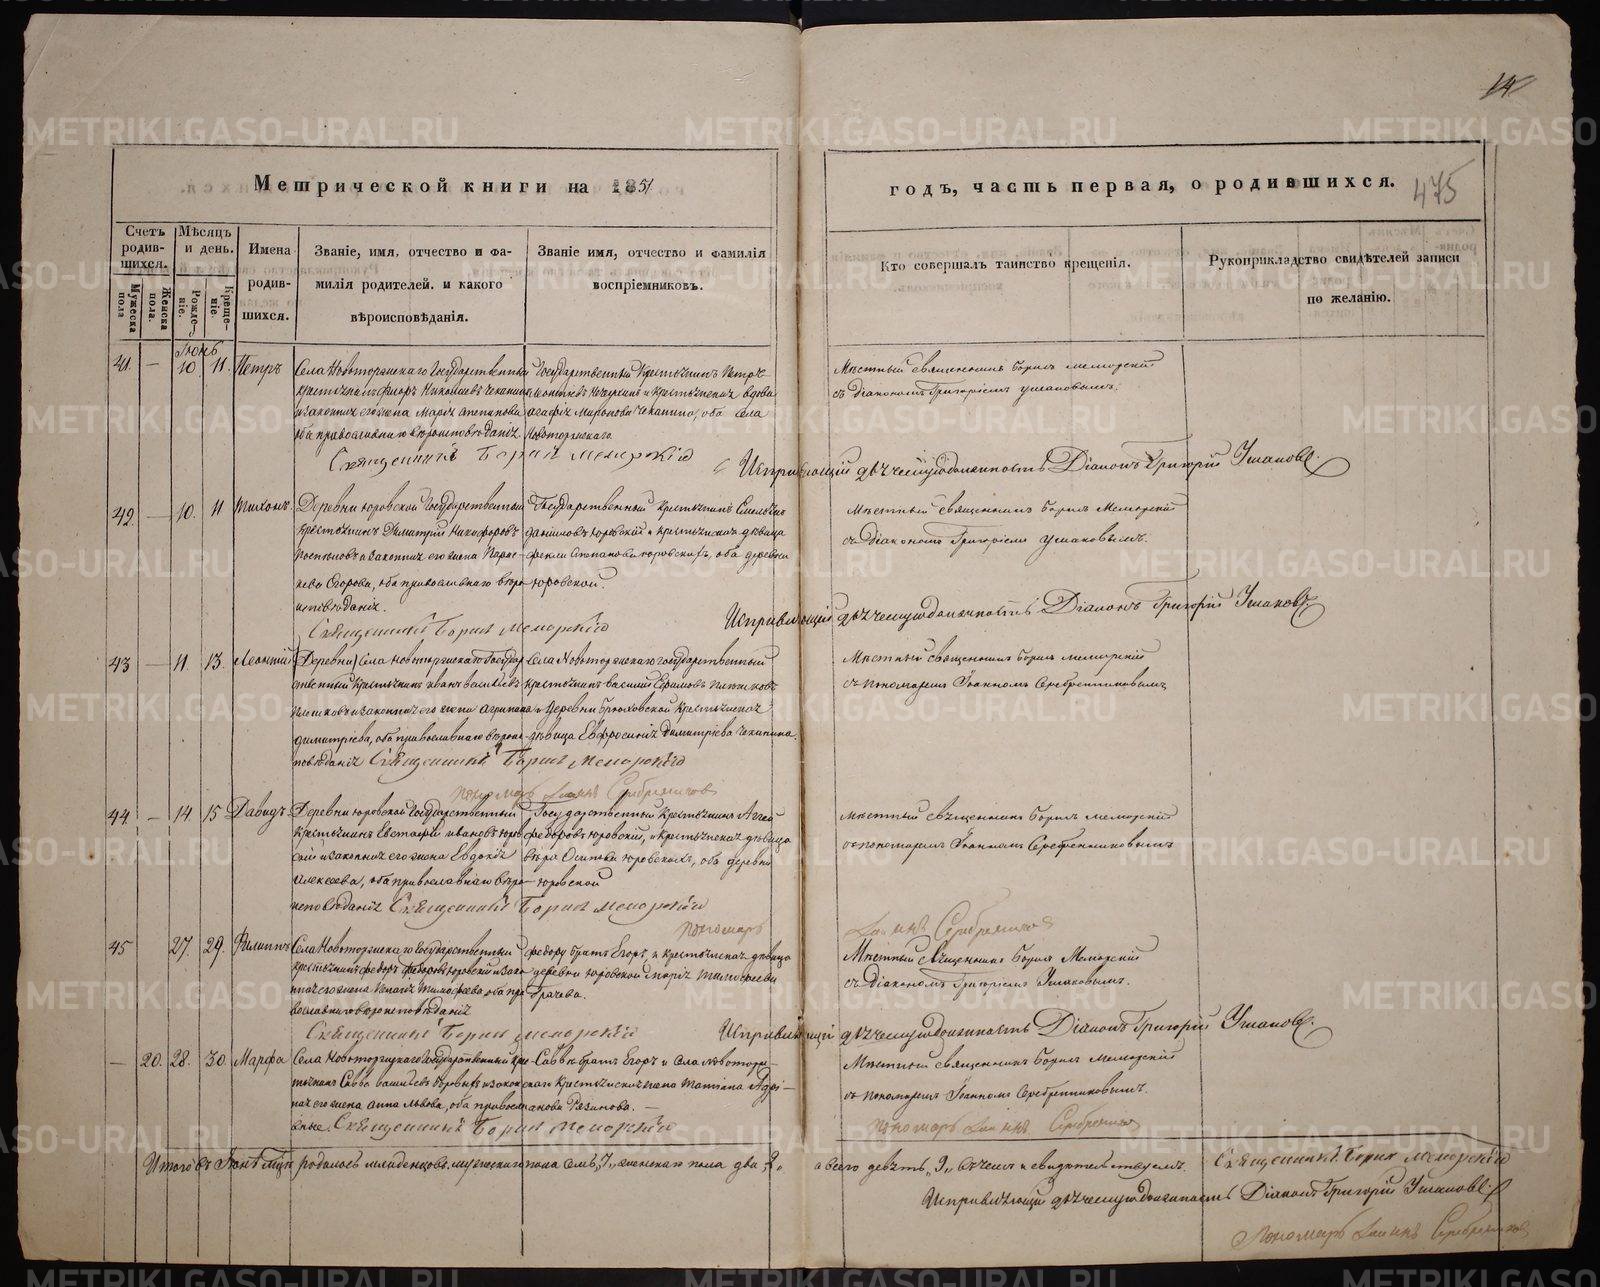 14
Метрической книги на 1851
годъ, часть первая, о родившихся.
475
Счетъ родив-шихся.
Мужеска пола
Женска пола.
Мѣсяцъ и день.
Рожде-ніе.
Креще-ніе.
Имена родив-шихся.
Званіе, имя, отчество и фа-
милія родителей. и какого
вѣроисповѣданія.
Званіе имя, отчество и фамилія
воспріемниковъ.
Кто совершалъ таинство крещенія.
Рукоприкладство свидѣтелей записи
по желанію.
Іюнь
41. — 10 11. Петръ
Села Новоторжскаго Государственный
крестьянинъ Николаевъ Чеканинъ
и законная его жена Марія
оба православнаго вѣроисповѣданія.
Государственный Крестьянинъ Петръ
и крестьянская вдова
Агафія Миронова Чеканина, оба села
Новоторжскаго
Мѣстный священникъ Борисъ Меморскій
съ діакономъ Григоріемъ Ушаковымъ.
Священникъ Борисъ Меморскій
Исправляющій дьяческую должность Діаконъ Григорій Ушаковъ.
42 — 10. 11 Тихонъ.
Деревни Юровской Государственный
Крестьянинъ Димитрій Никифоровъ
и законная его жена Парас-
кева Егорова, оба православнаго вѣро-
исповѣданія.
Государственный крестьянинъ Емельянъ
Даниловъ Юровскій и крестьянская дѣвица
Фекла Степанова Юровскихъ, оба деревни
Юровской.
Мѣстный священникъ Борисъ Меморскій
съ діакономъ Григоріемъ Ушаковымъ.
Священникъ Борисъ Меморскій
Исправляющій дьяческую должность Діаконъ Григорій Ушаковъ.
43 — 11. 13. Леонтій
(Деревни) Села Новоторжскаго Государ-
ственный Крестьянинъ Иванъ Васильевъ
и законная его жена Агрипина
Димитріева, оба православнаго вѣроис-
повѣданія
Села Новоторжскаго Государственный
крестьянинъ Василій Ефимовъ
и Деревни Брюховской Крестьянская
дѣвица Евфросинія Димитріева Чеканина.
Мѣстный священникъ Борисъ Меморскій
съ пономаремъ Іоанномъ Серебренниковымъ
Священникъ Борисъ Меморскій
Пономарь Іоаннъ Серебренниковъ
44 — 14 15 Давидъ
Деревни Юровской Государственный
Крестьянинъ Евстафій Ивановъ Юров-
скій и законная его жена Евдокія
Алексеева, оба православнаго вѣро-
исповѣданія
Государственный Крестьянинъ Аггей
Федоровъ Юровскій, и Крестьянская дѣвица
Вѣра Осипова Юровскихъ, оба деревни
Юровской
Мѣстный священникъ Борисъ Меморскій
съ пономаремъ Іоанномъ Серебренниковымъ
Священникъ Борисъ Меморскій
Пономарь Іоаннъ Серебренниковъ
45 27. 29. Филиппъ
Села Новоторжскаго Государственный
крестьянинъ Федоръ Юровскій и зако-
нная его жена Тимофеева, оба пра-
вославнаго вѣроисповѣданія
Федору братъ Егоръ, и крестьянская дѣвица
деревни Юровской Марія Тимофеева
Мѣстный Священникъ Борисъ Меморскій
съ діакономъ Григоріемъ Ушаковымъ.
Священникъ Борисъ Меморскій
Исправляющій дьяческую должность Діаконъ Григорій Ушаковъ.
— 20. 28. 30. Марфа
Села Новоторжскаго Государственный кре-
стьянинъ Савва Васильевъ и закон-
ная его жена Анна Львова, оба правосла-
вные.
Саввы братъ Егоръ и Села Новоторж-
скаго Крестьянская жена Татіана Адрі-
анова Рязанова. —
Мѣстный священникъ Борисъ Меморскій
съ пономаремъ Іоанномъ Серебренниковымъ.
Священникъ Борисъ Меморскій
Пономарь Іоаннъ Серебренниковъ
Итого въ Іюнѣ м̃цѣ родилось младенцовъ мужескаго пола семь „7„ женскаго пола два „2„ а всего девять „9„ въ чемъ и свидѣтельствуемъ.
Священникъ Борисъ Меморскій
Исправляющій дьяческую должность Діаконъ Григорій Ушаковъ
Пономарь Іоаннъ Серебренниковъ
METRIKI.GASO-URAL.RU